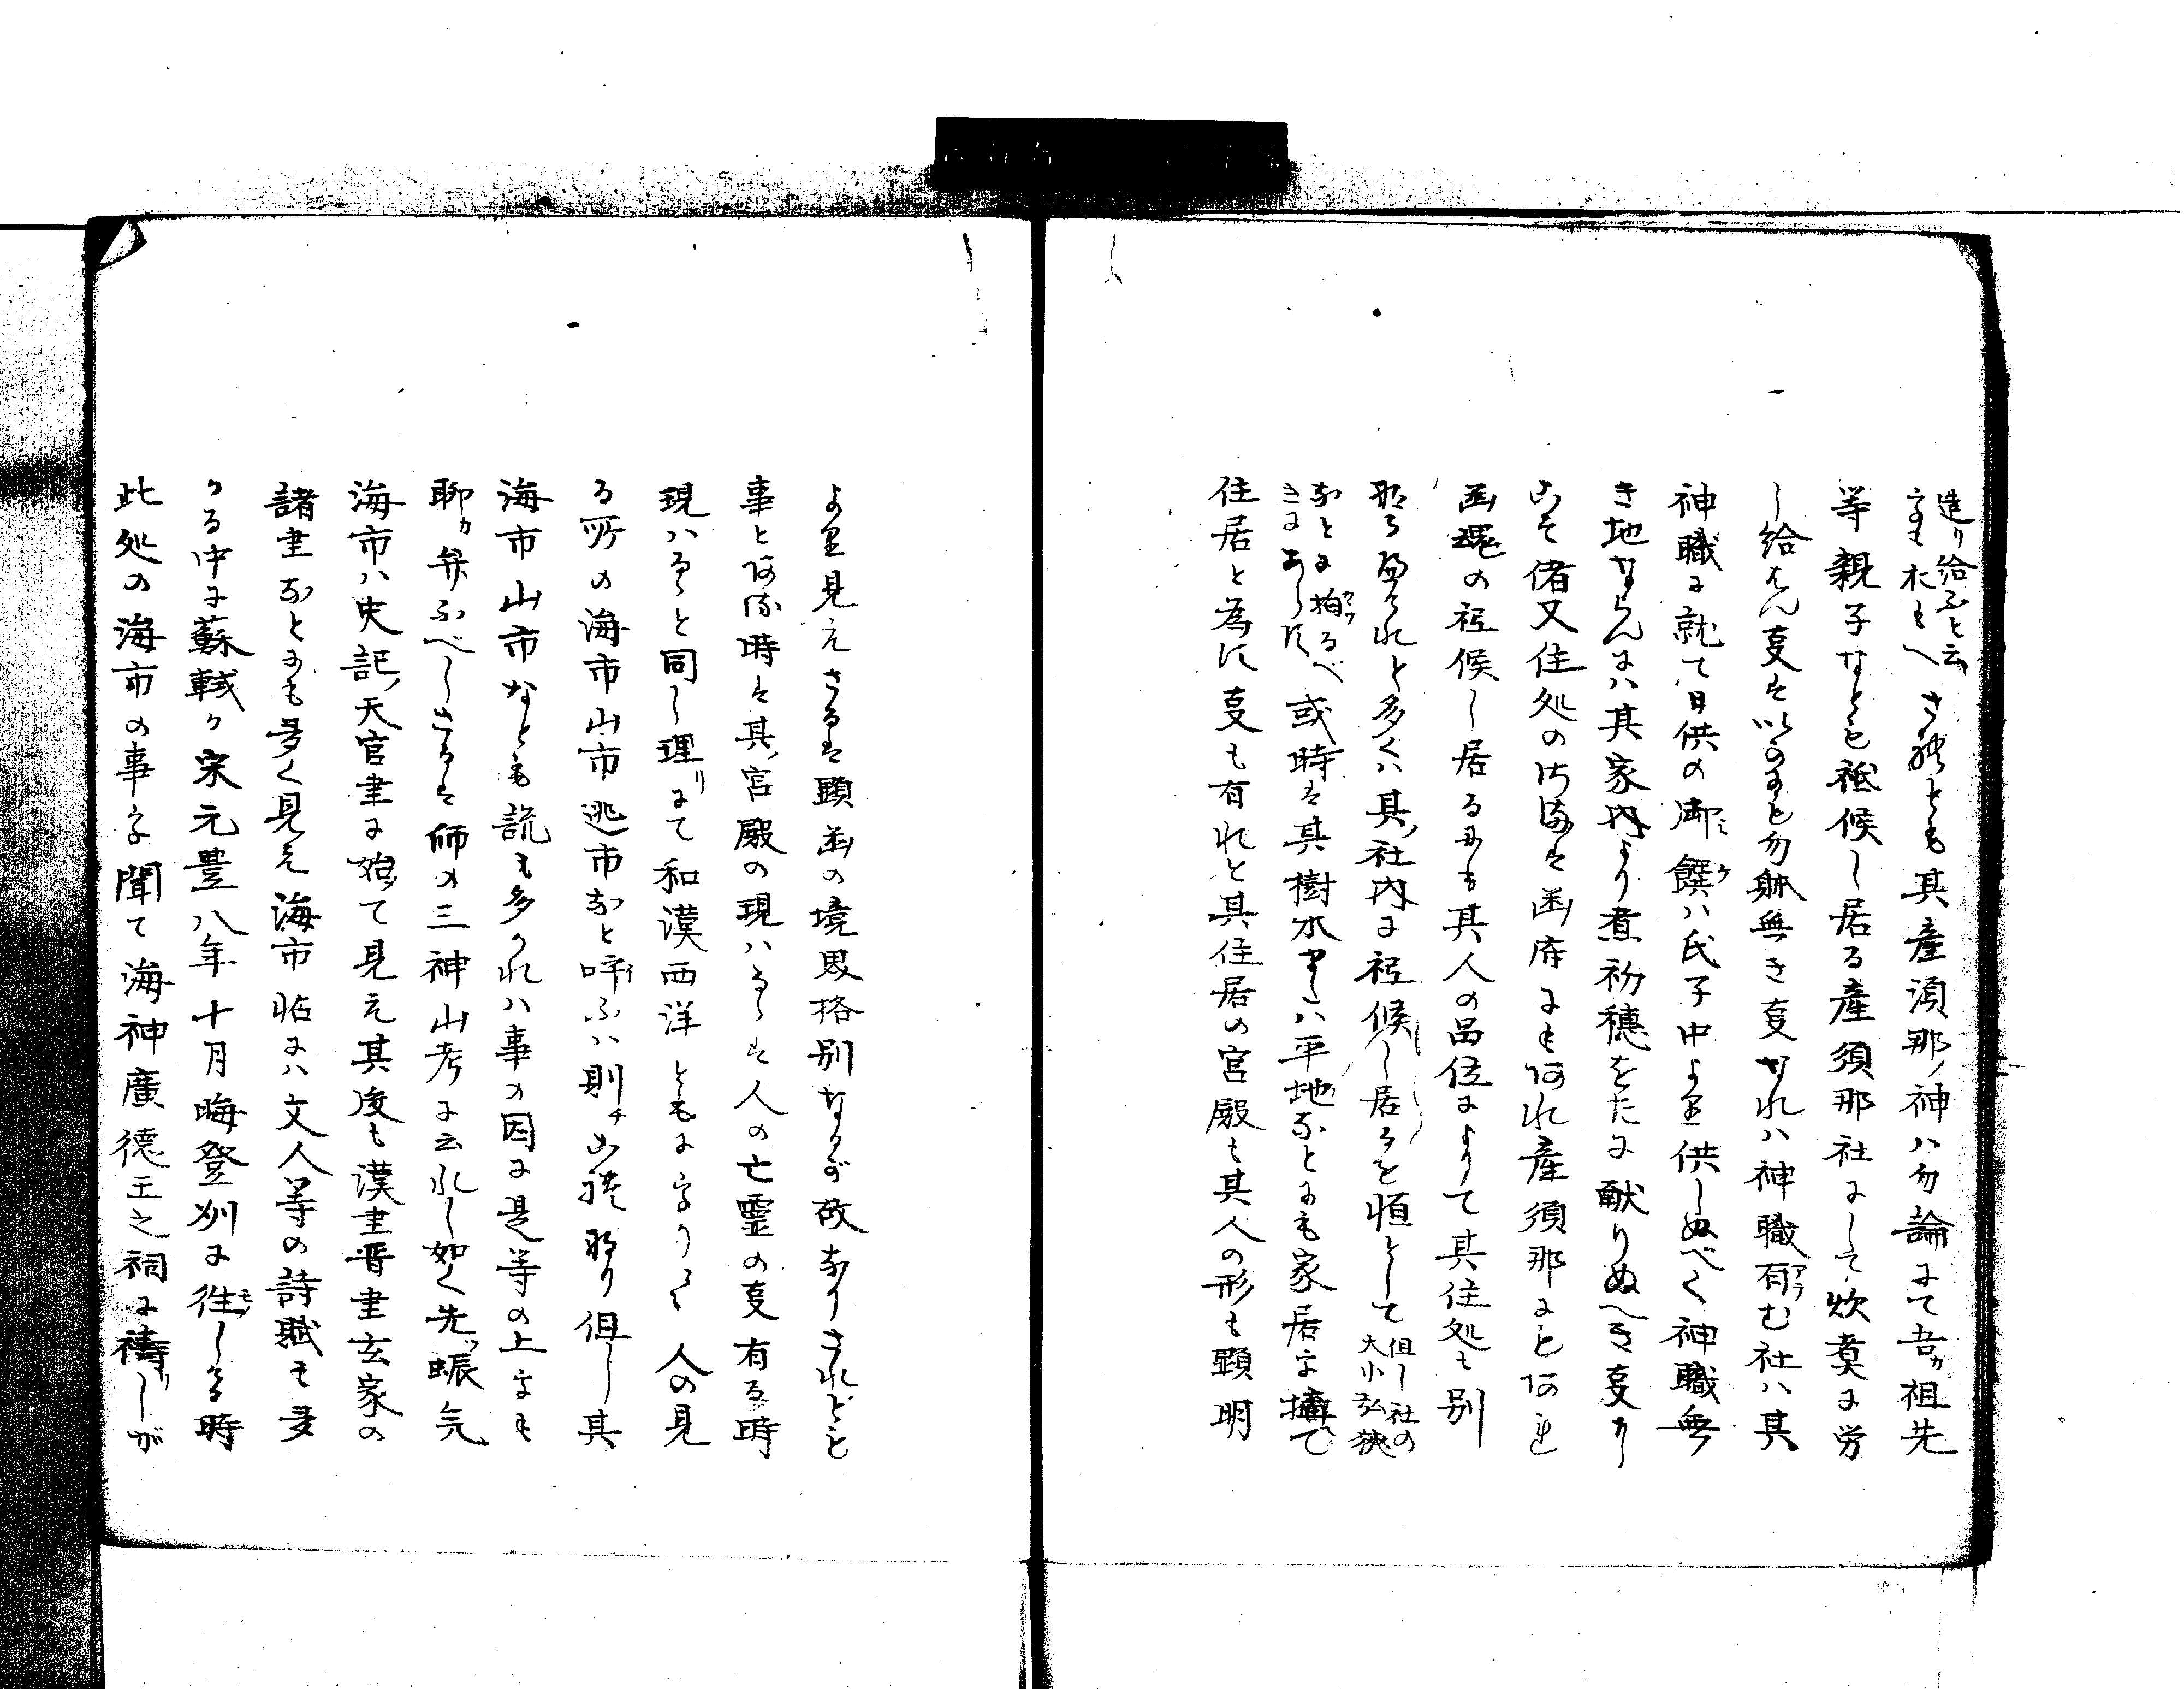 造り給ふと云
さ然とも其産須那ノ神ハ勿論にて吾カ祖先
等親子なとも祗候し居る産須那社にして炊爨に労
し給はん事は
勿躰無き事なれハ神職有む社ハ其
神職に就て日供の御饌ハ氏子中より供しぬべく神職無
き地ならんにハ其家内より煮初穂をたに献りぬへき事なり
偖又住処の
産須那に
幽魂の祗候し居るにも其人の品位によりて其住処も別
なれと多くハ其社内に祗候し居るを恒として
但し社の
大小弘狭
なとに拘るべ
きにあらす
或時は其樹木
ハ平地なとにも家居を構て
住居と為す事も有れと其住居の宮殿も其人の形も顕明
より見えさるは顕幽の境界格別なるが故なりされども
事と
時は其宮殿の現ハるゝは人の亡霊の事有る時
現ハるゝと同し理りにて和漢西洋ともに
人の見
る所の海市山市逃市なと呼ふハ則チ
なり但し其
海市山市なとも説も多かれハ事の因に是等の上をも
聊カ弁ふべしさるは師の三神山考に云れし如く先ツ蜃気
海市ハ史記ノ天官書に始て見え其後も漢書晋書玄家の
諸書なとにも多く見え海市
にハ文人等の詩賦も多
かる中に蘇軾か宋元豊八年十月晦登州に往しける時
此処の海市の事を聞て海神廣徳王之祠に禱りしが